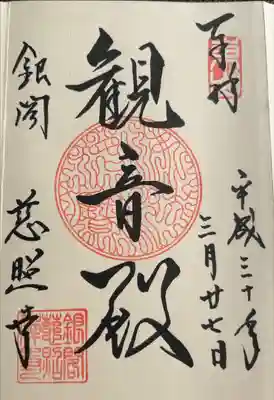 奉拝
平成三十年
三月廿七日
観音殿
銀閣
慈照寺